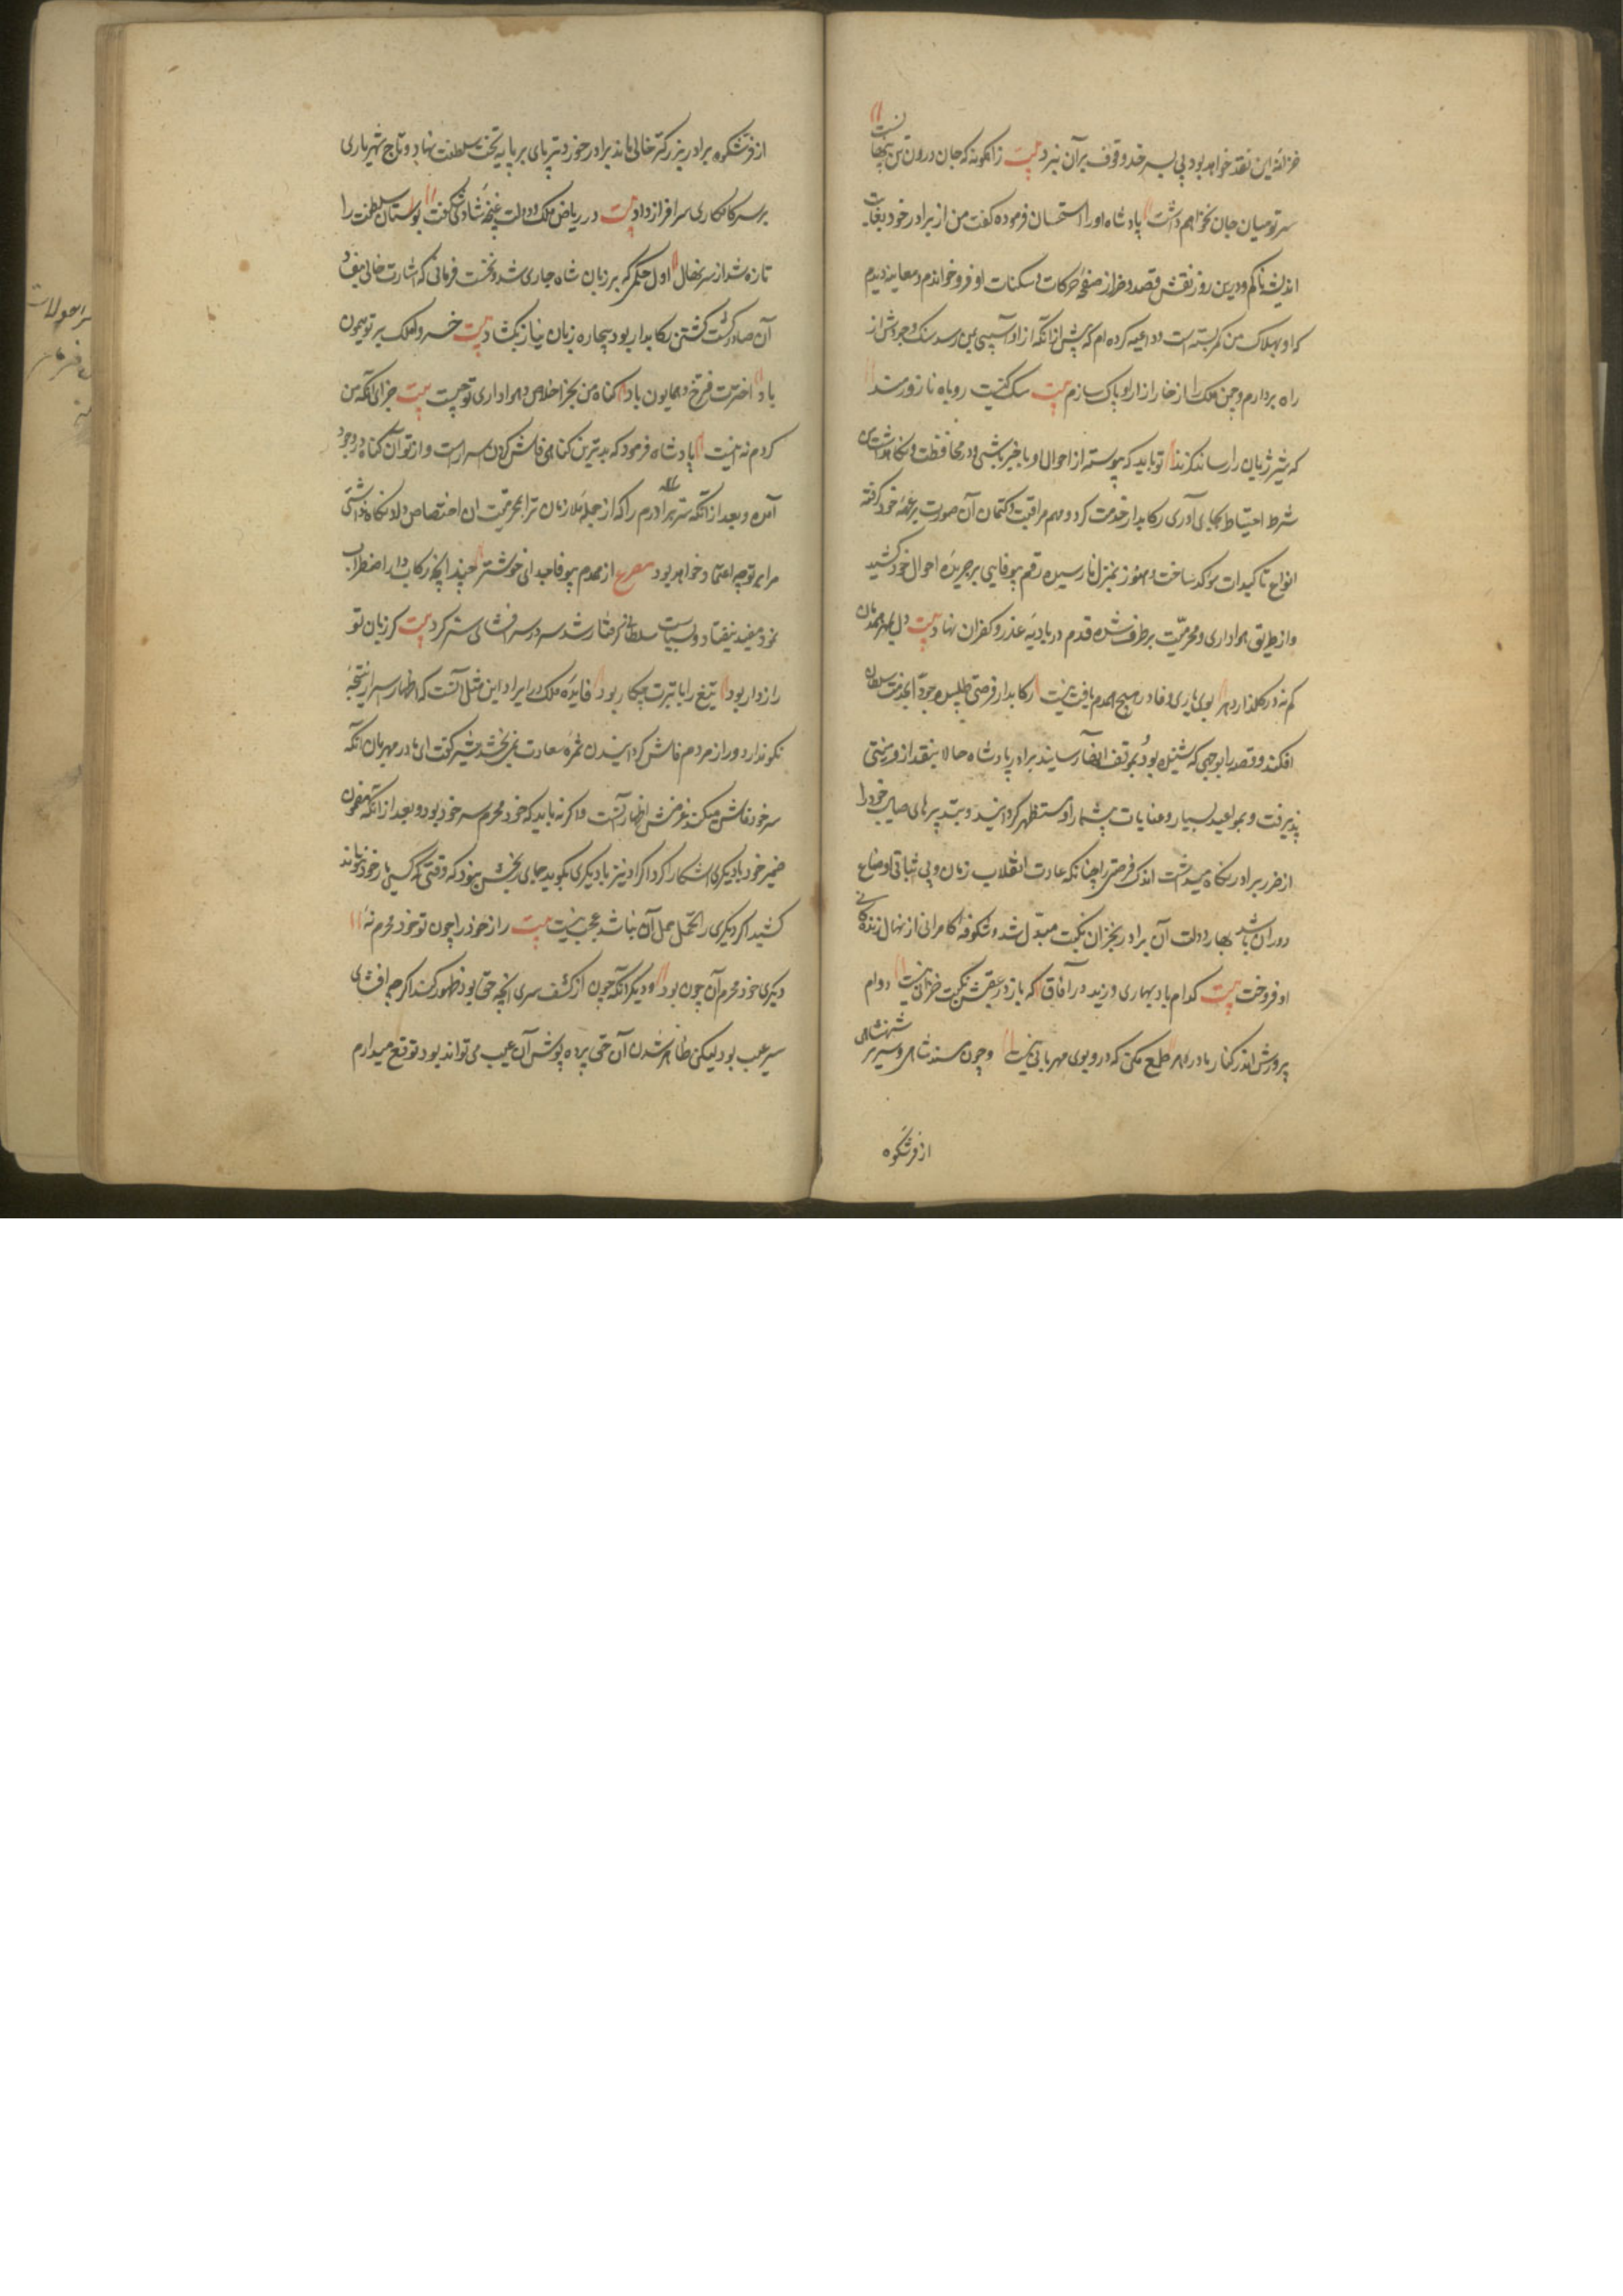 خزانهٔ این نقد خواهد بود پی بسر خد وقوف بر آن نبرد بیت زانگونه که جان درون تن پنهانست
سر تو میان جان نخواهم داشت پادشاه او را استحسان فرموده گفت من از برادر خود بغایت
اندیشه ناکم و درین روز نقش قصد و خرا از صفحهٔ حرکات و سکنات او فرو خواندم و معاینه دیدم
که او بهلاک من کمر بسته است و داعیه کرده ام که پیش از آنکه از او آسیبی بمن رسد سنک وجودش از
راه بردارم و چمن ملک را از خار ازار او پاک سازم بیت سک کیست روباه نازورمند
که شیر ژیان را رساند کزند تو باید که پیوسته از احوال او با خبر باشی و در محافظت و نگاهداشت من
شرط احتیاط بجای آوری رکابدار خدمت کرد و مهم مراقبت و کتمان آن صورت بر عهدهٔ خود گرفته
انواع تاکیدات موکد ساخت و هنوز بمنزل نارسیده رقم بیوفایی بر جریدهٔ احوال خود کشید
و از طریق هواداری و محرمیت بر طرف شده قدم در بادیهٔ غدر و کفران نهاد بیت دل بمهر همدمان
کم نه در گلذار دهر بوی یاری و وفا در هیچ همدم یافت نیست رکابدار فرصتی طلبیده خود را بخدمت سلطان
افکند و قصه را بوجهی که شنیده بود بموقف انها رسانید برادر پادشاه حالا بنقد از و منتی
پذیرفت و بمواعید بسیار و عنایات بیشمار او را مستظهر گردانید و بتدبیرهای صایب خود را
از ضرر برادر نگاه میداشت اندک فرصتی را چنانکه عادت انقلاب زمان و بی ثباتی اوضاع
دوران باشد بهار دولت آن برادر بخزان نکبت مبدل شد و شکوفهٔ کامرانی از نهال زندگانی
او فرو ریخت بیت کدام باد بهاری وزید در آفاق که باز در عقبش نکبت خزانی نیست دوام
پرورش اندر کنار مادر دهر طمع مکن که درو بوی مهربانی نیست و چون مسند شاهی و سریر شهنشاهی
از فر شکوه
از فر شکوه برادر بزرکتر خالی ماند برادر خوردتر پای بر پایهٔ تخت سلطنت نهاد و تاج شهریاری
بر سر کامکاری سرافراز داد بیت در ریاض ملک و دولت غنچهٔ شادی شکفت بوستان سلطنت را
تازه شد از سر نهال اول حکمی که بر زبان شاه جاری شد و نخست فرمانی که اشارت خانی بنفاذ
آن صادر گشت کشتن رکابدار بود بیچاره زبان نیاز بگشاد بیت خسروا ملک بر تو میمون
باد اخترت فرخ و همایون باد کناه من بجز اخلاص و هواداری تو چیست بیت جزای آنکه من
کردم نه اینست پادشاه فرمود که بدترین کناهی فاش کردن اسرارست و از تو آن کناه در وجود
آمده و بعد از آنکه سر برادرم را که از جمله ملازمان ترا بمحرمیت ان اختصاص داد نگاه نداشتی
مرا بر تو چه اعتماد خواهد بود مصرع از همدم بیوفا جدائی خوشتر چندانچه رکابدار اضطراب
نمود مفید نیفتاد و بسیاست سلطانی گرفتار شد سر در سر افشای سر کرد بیت کر زبان تو
رازدار بود تیغ را با سرت چکار بود فایدهٔ ملک در ایراد این مثل آنست که اظهار سر نتیجهٔ
نکو ندارد و راز مردم فاش گردانیدن ثمرهٔ سعادت نمی بخشد شیر گفت ای مادر مهربان آنکه
سر خود فاش میکند غرضش اظهار آنست و اگر نه باید که خود محرم سر خود بود و بعد از آنکه مضمون
ضمیر خود با دیگری آشکارا کرد اگر او نیز با دیگری بگوید جای رنجش نبود که وقتی که کسی بار خود نتواند
کشید اگر دیگری را تحمل حمل آن نباشد عجب نیست بیت راز خود را چون تو خود محرم نهٔ
دیگری خود محرم آن چون بود و دیگر آنکه چون از کشف سری آنچه حق بود ظهور کند اگر چه افشای
سر عیب بود لیکن ظاهر شدن آن حق پرده پوش آن عیب می تواند بود توقع میدارم